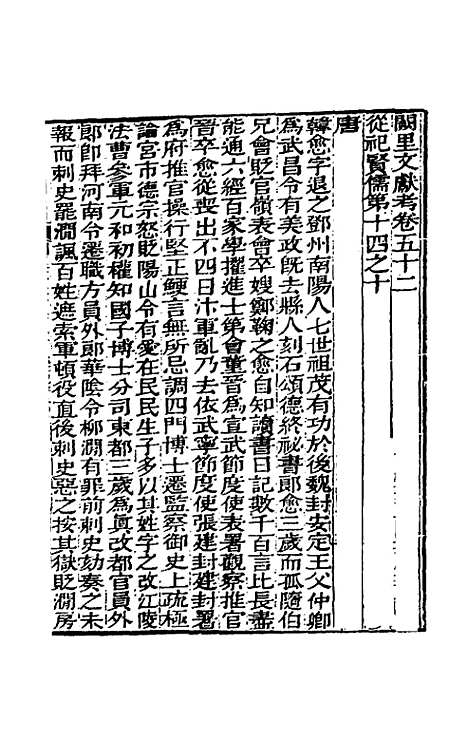 闕里文獻考卷五十二
從祀賢儒第十四之十
唐
韓愈字退之鄧州南陽人七世祖茂有功於後魏封安定王父仲卿
爲武昌令有美政旣去縣人刻石頌德終祕書郎愈三歲而孤隨伯
兄會貶官嶺表會卒嫂鄭鞠之愈自知讀書日記數千百言比長盡
能通六經百家學擢進士第會董晉爲宣武節度使表署觀察推官
晉卒愈從喪出不四日汴軍亂乃去依武寧節度使張建封建封署
爲府推官操行堅正鯁言無所忌調四門博士遷監察御史上疏極
論宮市德宗怒貶陽山令有愛在民民生子多以其姓字之改江陵
法曹參軍元和初權知國子博士分司東都三歲爲眞改都官員外
郎卽拜河南令遷職方員外郎華陰令柳澗有罪前刺史劾奏之未
報而刺史罷澗諷百姓遮索軍頓役直後刺史惡之按其獄貶澗房